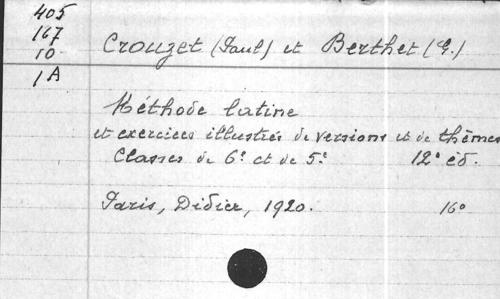 405
167
10
1A
Crouzet (Paul) et Berthet (G.)
Méthode latine
et exercices illustrés de versions et de thèmes
Classes de 6e et de 5e 12e éd.
Paris, Didier, 1920. 16o